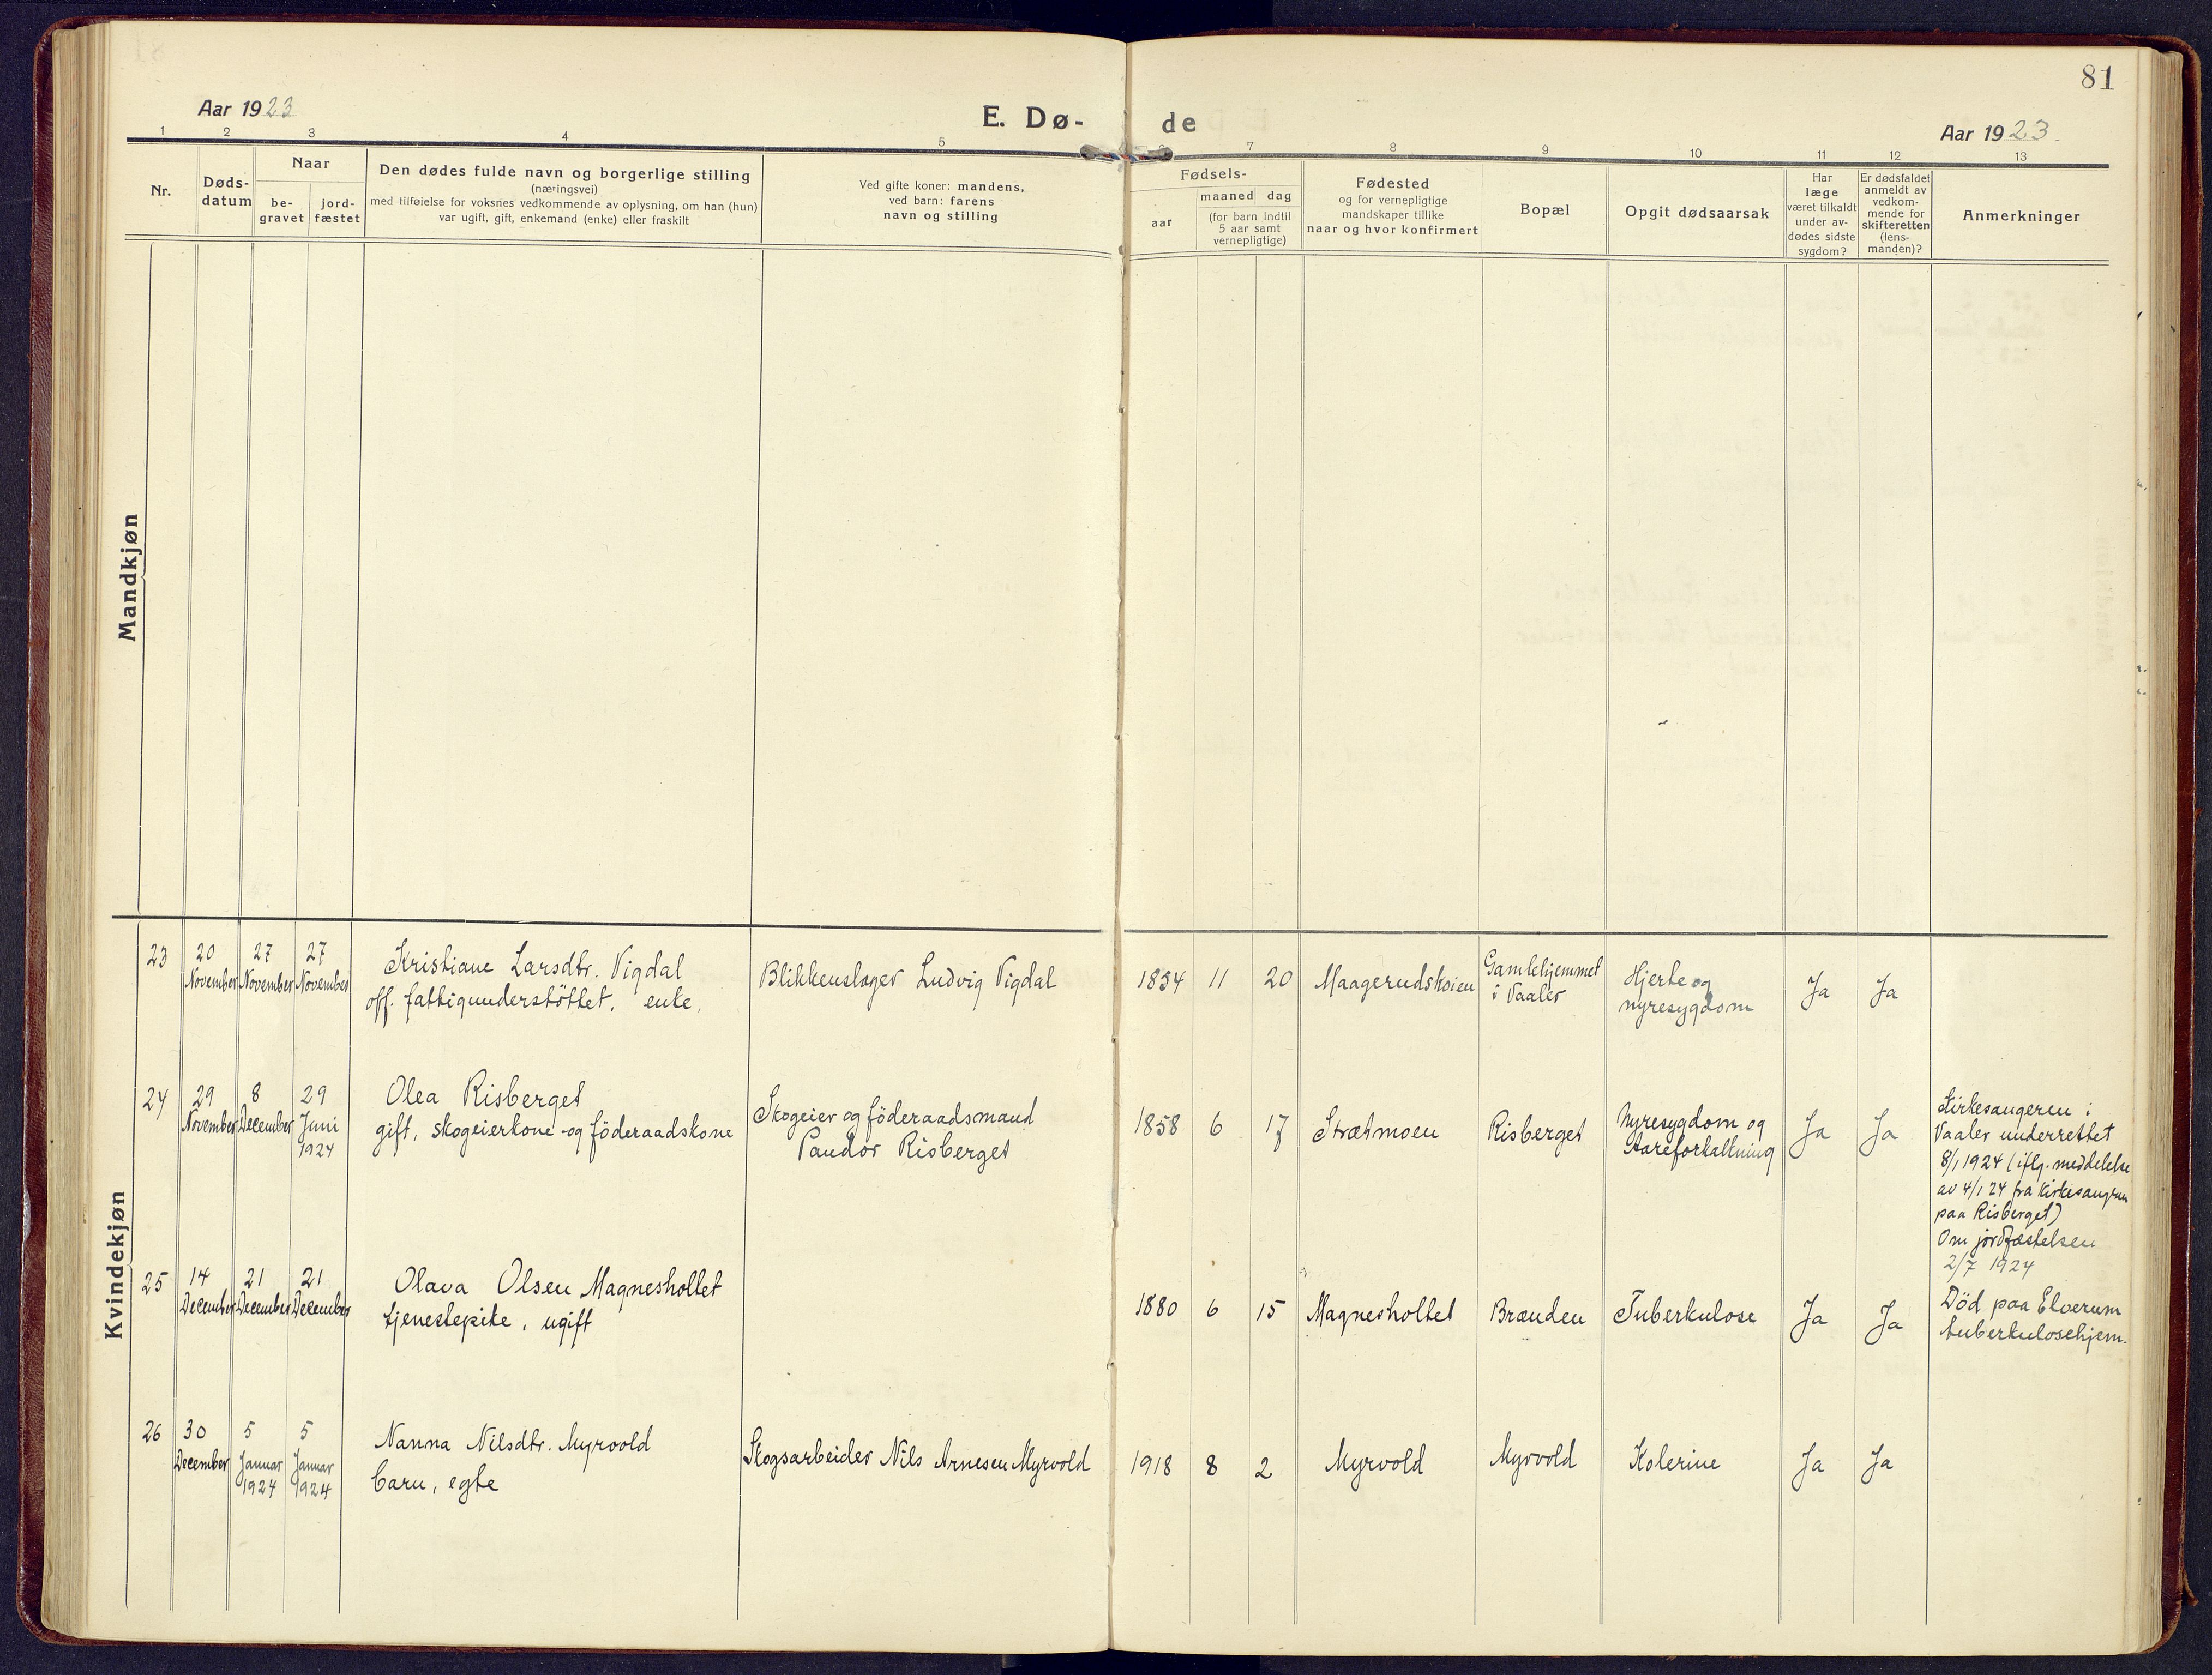 81
Aar 1923
E. Dø-
de
Aar 1923.
1 2 3 4 5 7 8 9 10 11 12 13
Nr.
Døds-
datum
Naar
be-
gravet
jord-
fæstet
Den dødes fulde navn og borgerlige stilling
(næringsvei)
med tilføielse for voksnes vedkommende av oplysning, om han (hun)
var ugift, gift, enkemand (enke) eller fraskilt
Ved gifte koner: mandens,
ved barn: farens
navn og stilling
Fødsels-
aar
maaned dag
(for barn indtil
5 aar samt
vernepligtige)
Fødested
og for vernepligtige
mandskaper tillike
naar og hvor konfirmert
Bopæl
Opgit dødsaarsak
Har
læge
været tilkaldt
under av-
dødes sidste
sygdom?
Er dødsfaldet
anmeldt av
vedkom-
mende for
skifteretten
(lens-
manden)?
Anmerkninger
Mandkjøn
Kvindekjøn
23
20
November
27
November
27
November
Kristiane Larsdtr. Vigdal
off. fattigunderstöttet, enke.
Blikkenslager Ludvig Vigdal
1854 11 20
Maagerudskoien
Gamlehjemmet
i Vaaler
Hjerte og
nyresygdom
Ja
Ja
24
29
November
8
December
29
Juni
1924
Olea Risberget
gift, skogeierkone og föderaadskone
Skogeier og föderaadsmand
Paudor Risberget
1858 6 17
Strætmoen
Risberget
Nyresygdom og
aareforkaltning
Ja
Ja
Kirkesangeren i
Vaaler underrettet
8/1 1924 (iflg. meddelelse
av 4/1 24 fra kirkesangeren
paa Risberget)
Om jordfæstelsen
2/7 1924
25
14
December
21
December
21
December
Olava Olsen Magnesholtet
tjenestepike, ugift
1880 6 15
Magnesholtet
Brænden
Tuberkulose
Ja
Ja
Död paa Elverum
tuberkulosehjem.
26
30
December
5
Januar
1924
5
Januar
1924
Nanna Nilsdtr. Myrvold
barn, egte
Skogsarbeider Nils Arnesen Myrvold
1918 8 2
Myrvold
Myrvold
Kolerine
Ja
Ja